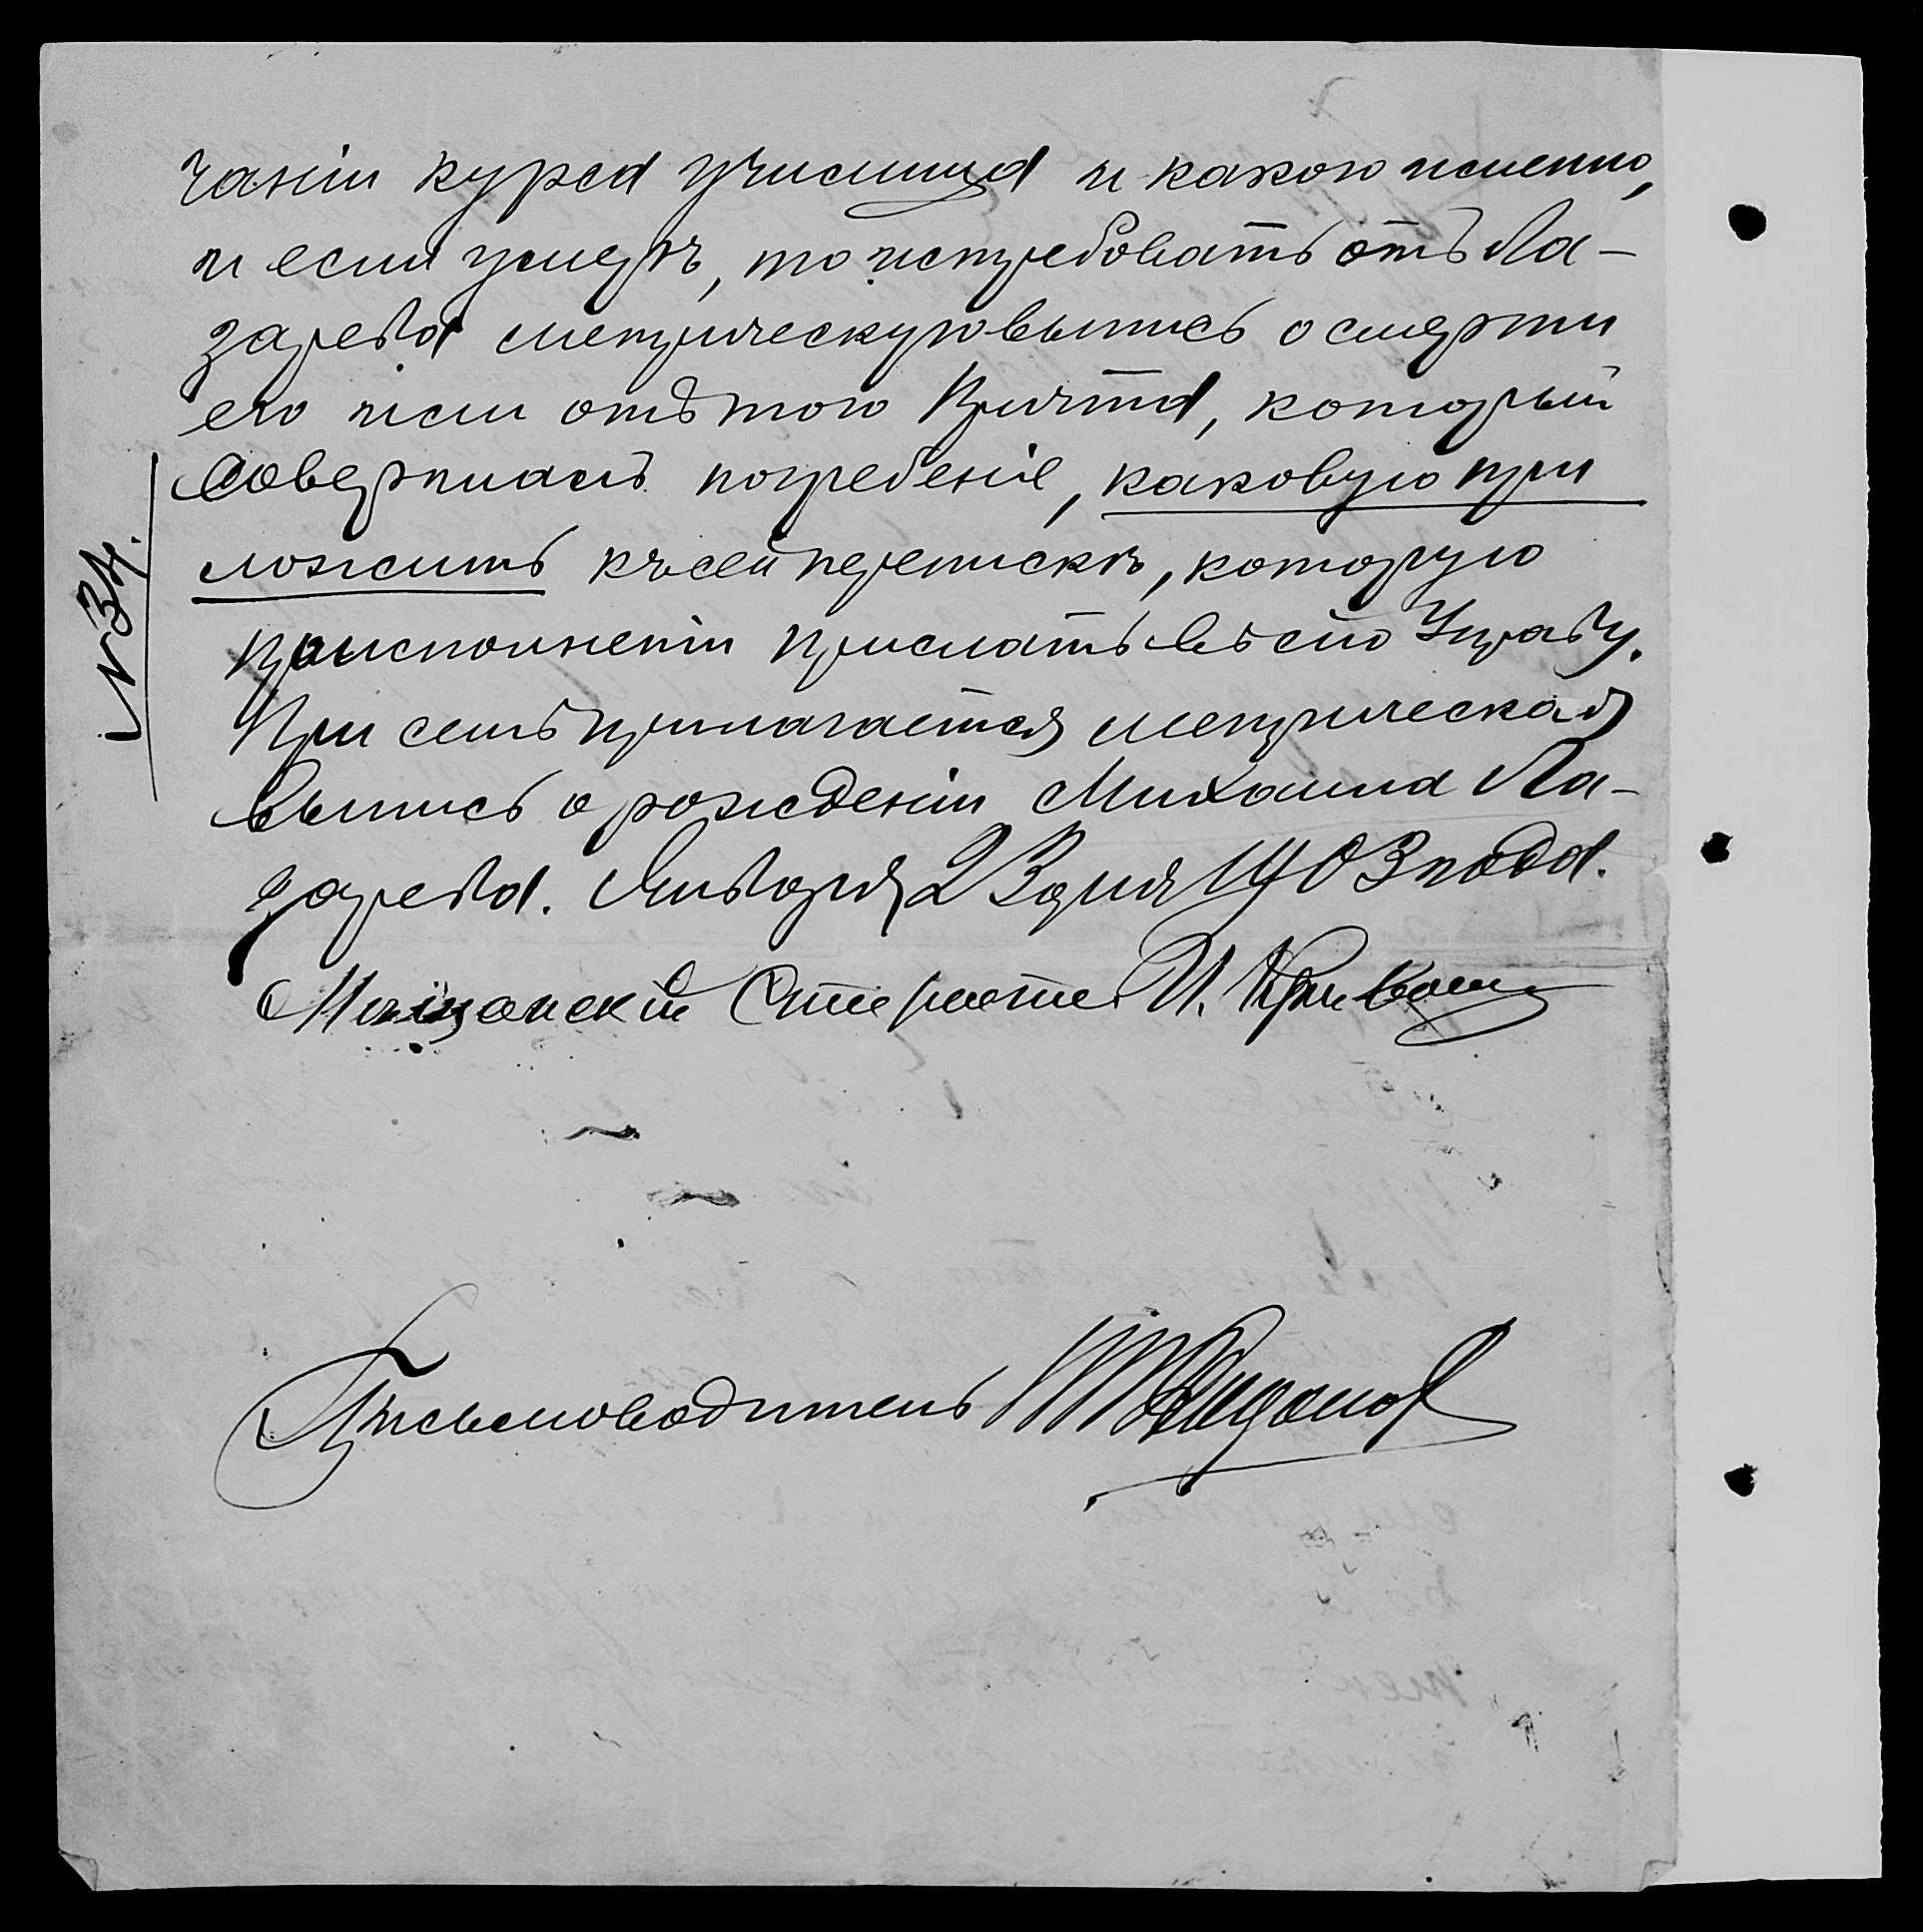 чаніи курса училища и какого именно,
и если умеръ, то истребовать отъ Ла-
зарева метрическую выпись о смерти
его или отъ того Причта, который
совершилъ погребеніе, каковую при
ложить къ сей перепискѣ, которую
по исполненіи прислать въ сію Управу.
При семъ прилагается метрическая
выпись о рожденіи Михаила Ла-
зарева. Января 23 дня 1903 года.
Мѣщанскій Староста И.
Письмоводитель
№ 34.